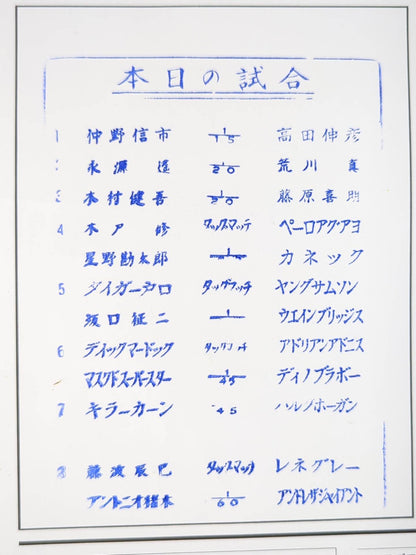 本日の試合
1 仲野信市 1/15 高田伸彦
2 永源遥 1/20 荒川真
3 木村健吾 1/30 藤原喜明
4 木戸修 タッグマッチ ペーロアグ・アヨ
星野勘太郎 カネック
5 タイガー戸口 タッグマッチ ヤングサムソン
坂口征二 ウエインブリッジス
6 ディックマードック タッグマッチ アドリアンアドニス
マスクドスーパースター 1/45 ディノブラボー
7 キラーカーン 45 ハルクホーガン
8 藤波辰巳 タッグマッチ レネグレー
アントニオ猪木 1/60 アンドレザジャイアント